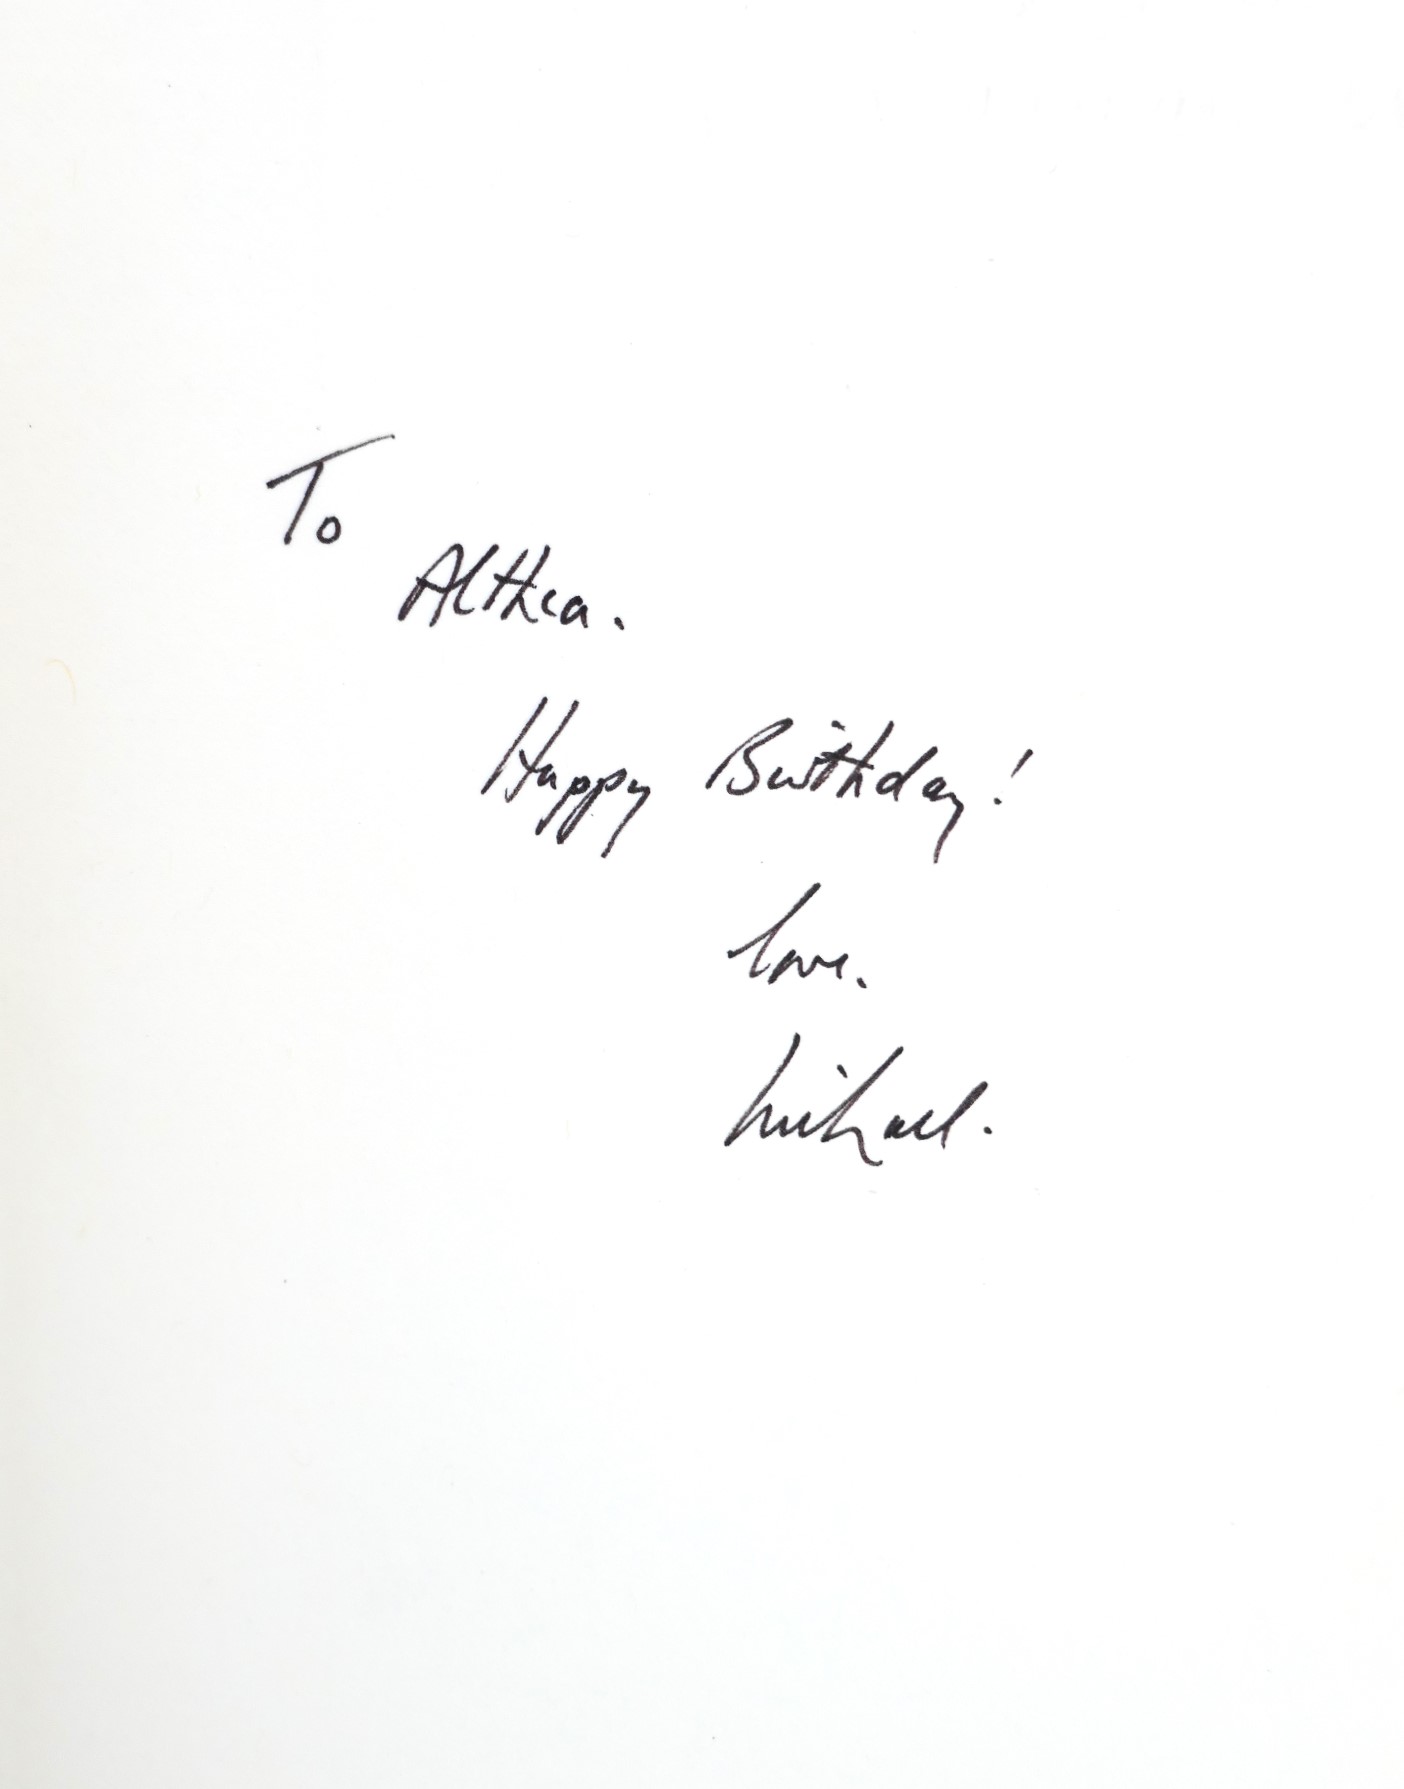 To
Althea.
Happy Birthday!
love.
Michael.